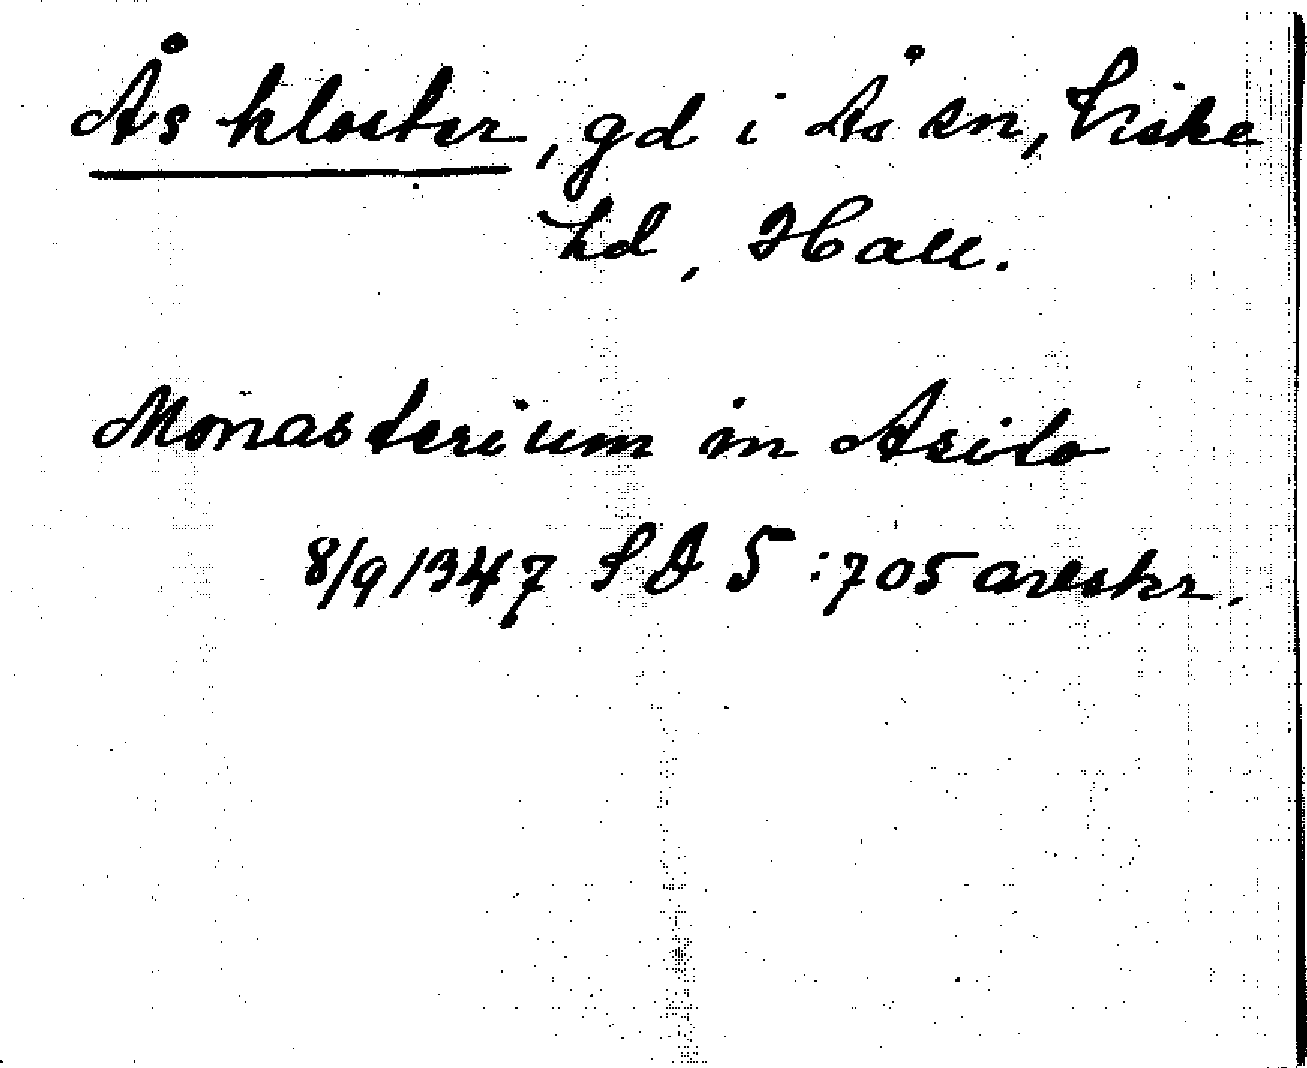 Ås kloster, gd i Ås sn, Viske
hd, Hall.
Monasterium in Asilo
8/9 1347 SD 5:705 avskr.